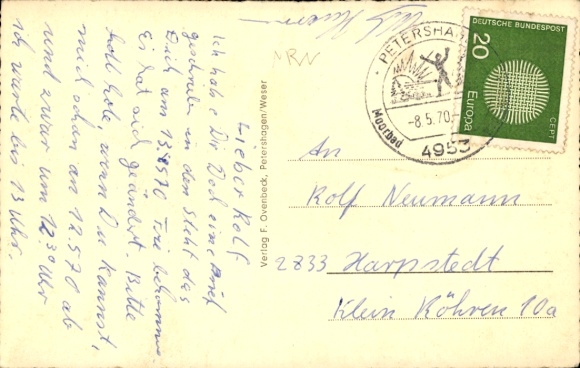 Lieber Rolf
Ich habe Dir doch eine Brief
geschrieben in den Steht das
Dich am 13.5.70 Frei bekomme
Es hat sich geändert. Bitte
hole wenn Du kannst,
mich schon am 12.5.70 ab
und zwar um 12.30 Uhr
ich warte bis 13 Uhr.
NRW
Verlag F. Ovenbeck, Petershagen/Weser
PETERSHA
-8.5.70.
Moorbad
4953
DEUTSCHE BUNDESPOST
20
Europa
CEPT
An
Rolf Neumann
2833 Harpstedt
Klein Köhren 10a